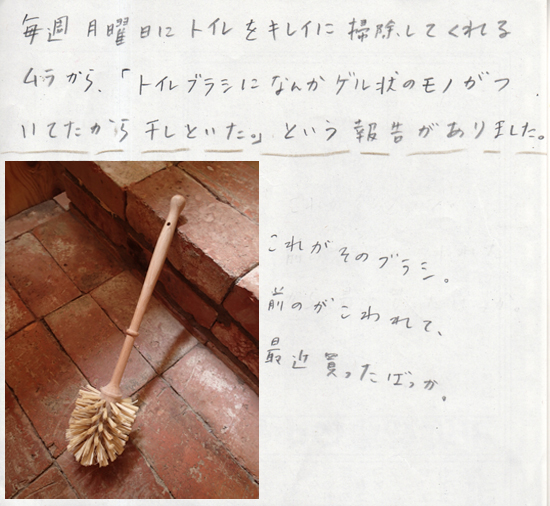 毎週月曜日にトイレをキレイに掃除してくれる
ムラから、「トイレブラシになんかゲル状のモノがつ
いてたから干しといた。」という報告がありました。
これがそのブラシ。
前のがこわれて、
最近買ったばっか。